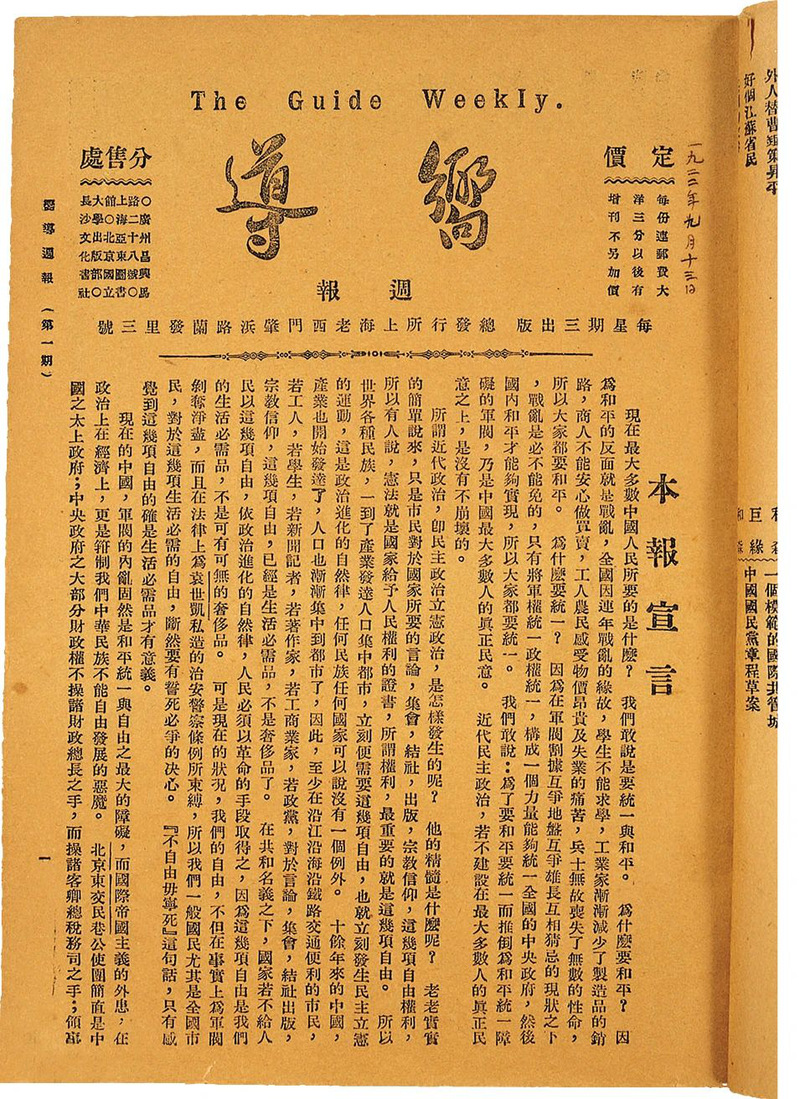 The Guide Weekly.
嚮導
週報
定價
每份連郵費大
洋三分以後有
增刊不另加價
分售處
○廣州昌興馬
路二十八號○
上海亞東圖書
館○北京國立
大學出版部○
長沙文化書社
一九二二年九月十三日
每星期三出版 總發行所上海老西門肇浜路蘭發里三號
本報宣言
現在最大多數中國人民所要的是什麽? 我們敢說是要統一與和平。 爲什麽要和平? 因
爲和平的反面就是戰亂,全國因連年戰亂的緣故,學生不能求學,工業家漸漸減少了製造品的銷
路,商人不能安心做買賣,工人農民感受物價昂貴及失業的痛苦,兵士無故喪失了無數的性命,
所以大家都要和平。 爲什麽要統一? 因爲在軍閥割據互爭地盤互爭雄長互相猜忌的現狀之下
,戰亂是必不能免的,只有將軍權統一政權統一,構成一個力量能夠統一全國的中央政府,然後
國內和平才能夠實現,所以大家都要統一。 我們敢說:爲了要和平要統一而推倒爲和平統一障
礙的軍閥,乃是中國最大多數人的眞正民意。 近代民主政治,若不建設在最大多數人的眞正民
意之上,是沒有不崩壞的。
所謂近代政治,卽民主政治立憲政治,是怎樣發生的呢? 他的精髓是什麽呢? 老老實實
的簡單說來,只是市民對於國家所要的言論,集會,結社,出版,宗教信仰,這幾項自由權利,
所以有人說,憲法就是國家給予人民權利的證書,所謂權利,最重要的就是這幾項自由。 所以
世界各種民族,一到了產業發達人口集中都市,立刻便需要這幾項自由,也就立刻發生民主立憲
的運動,這是政治進化的自然律,任何民族任何國家可以說沒有一個例外。 十餘年來的中國,
產業也開始發達了,人口也漸漸集中到都市了,因此,至少在沿江沿海沿鐵路交通便利的市民,
若工人,若學生,若新聞記者,若著作家,若工商業家,若政黨,對於言論,集會,結社出版,
宗教信仰,這幾項自由,已經是生活必需品,不是奢侈品了。 在共和名義之下,國家若不給人
民以這幾項自由,依政治進化的自然律,人民必須以革命的手段取得之,因爲這幾項自由是我們
的生活必需品,不是可有可無的奢侈品。 可是現在的狀況,我們的自由,不但在事實上爲軍閥
剝奪淨盡,而且在法律上爲袁世凱私造的治安警察條例所束縛,所以我們一般國民尤其是全國市
民,對於這幾項生活必需的自由,斷然要有誓死必爭的决心。 『不自由毋寧死』這句話,只有感
覺到這幾項自由的確是生活必需品才有意義。
現在的中國,軍閥的內亂固然是和平統一與自由之最大的障礙,而國際帝國主義的外患,在
政治上在經濟上,更是箝制我們中華民族不能自由發展的惡魔。 北京東交民巷公使團簡直是中
國之太上政府;中央政府之大部分財政權不操諸財政總長之手,而操諸客卿總稅務司之手;領事
嚮導週報 (第一期)
一
外人替曹錕築昇平
好個江蘇省民
巨緣
一個模範的國際共管城
中國國民黨章程草案